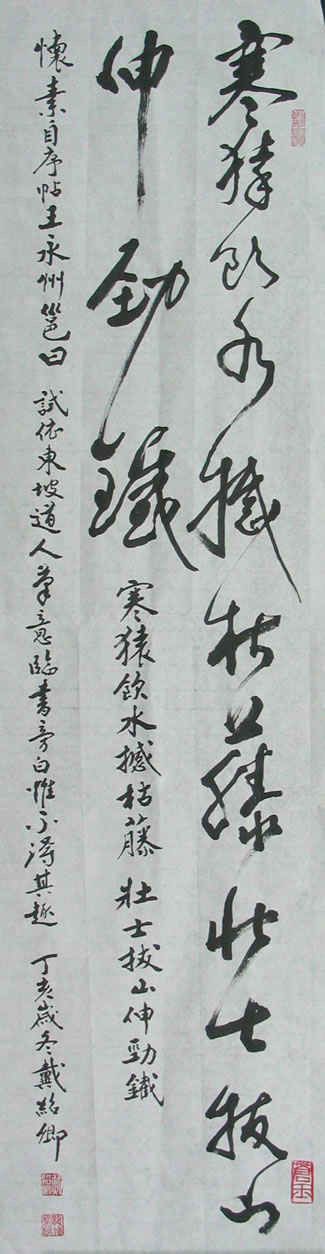 寒猿飲水撼枯藤壯士拔山
伸勁鐵
寒猿飲水撼枯藤 壯士拔山伸勁鐵
懷素自序帖王永州邕曰 試依東坡道人筆意臨書旁白惟不得其趣 丁亥歲冬戴紹卿